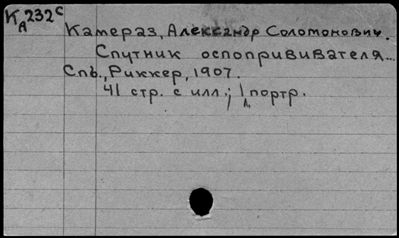 К 232 с
А
Камераз, Александр Соломонович.
Спутник оспопрививателя...
Спб., Риккер, 1907.
41 стр. с илл.; 1 л. портр.